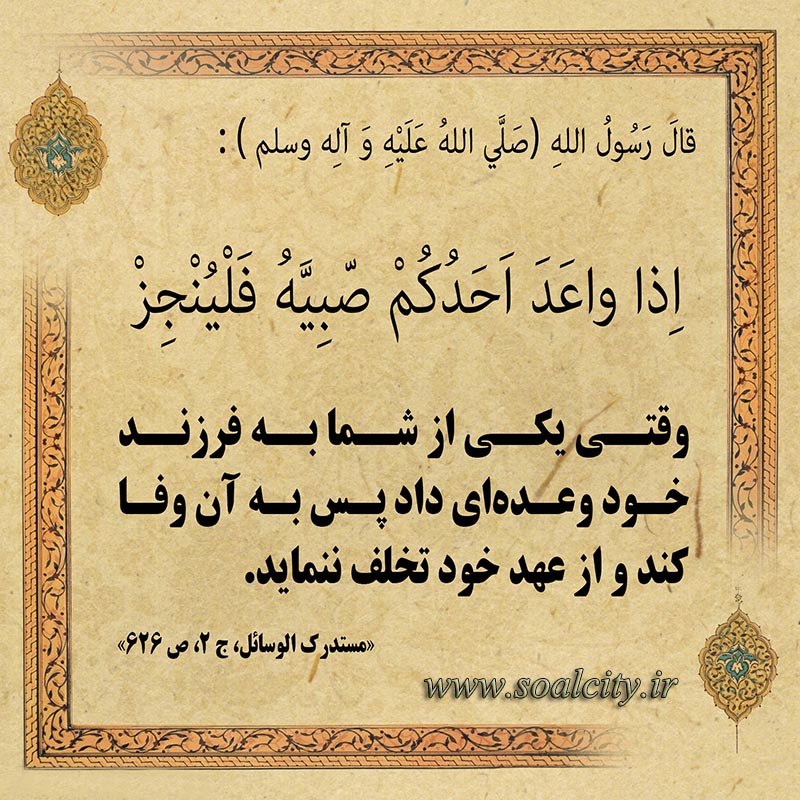 قالَ رَسُولُ اللهِ (صَلَّي اللهُ عَلَيْهِ وَ آلِه وسلم ) :
اِذا واعَدَ اَحَدُكُمْ صّبِيَّهُ فَلْيُنْجِزْ
وقتی یکی از شما به فرزند
خود وعده‌ای داد پس به آن وفا
کند و از عهد خود تخلف ننماید.
«مستدرک الوسائل، ج ۲، ص ۶۲۶»
www.soalcity.ir